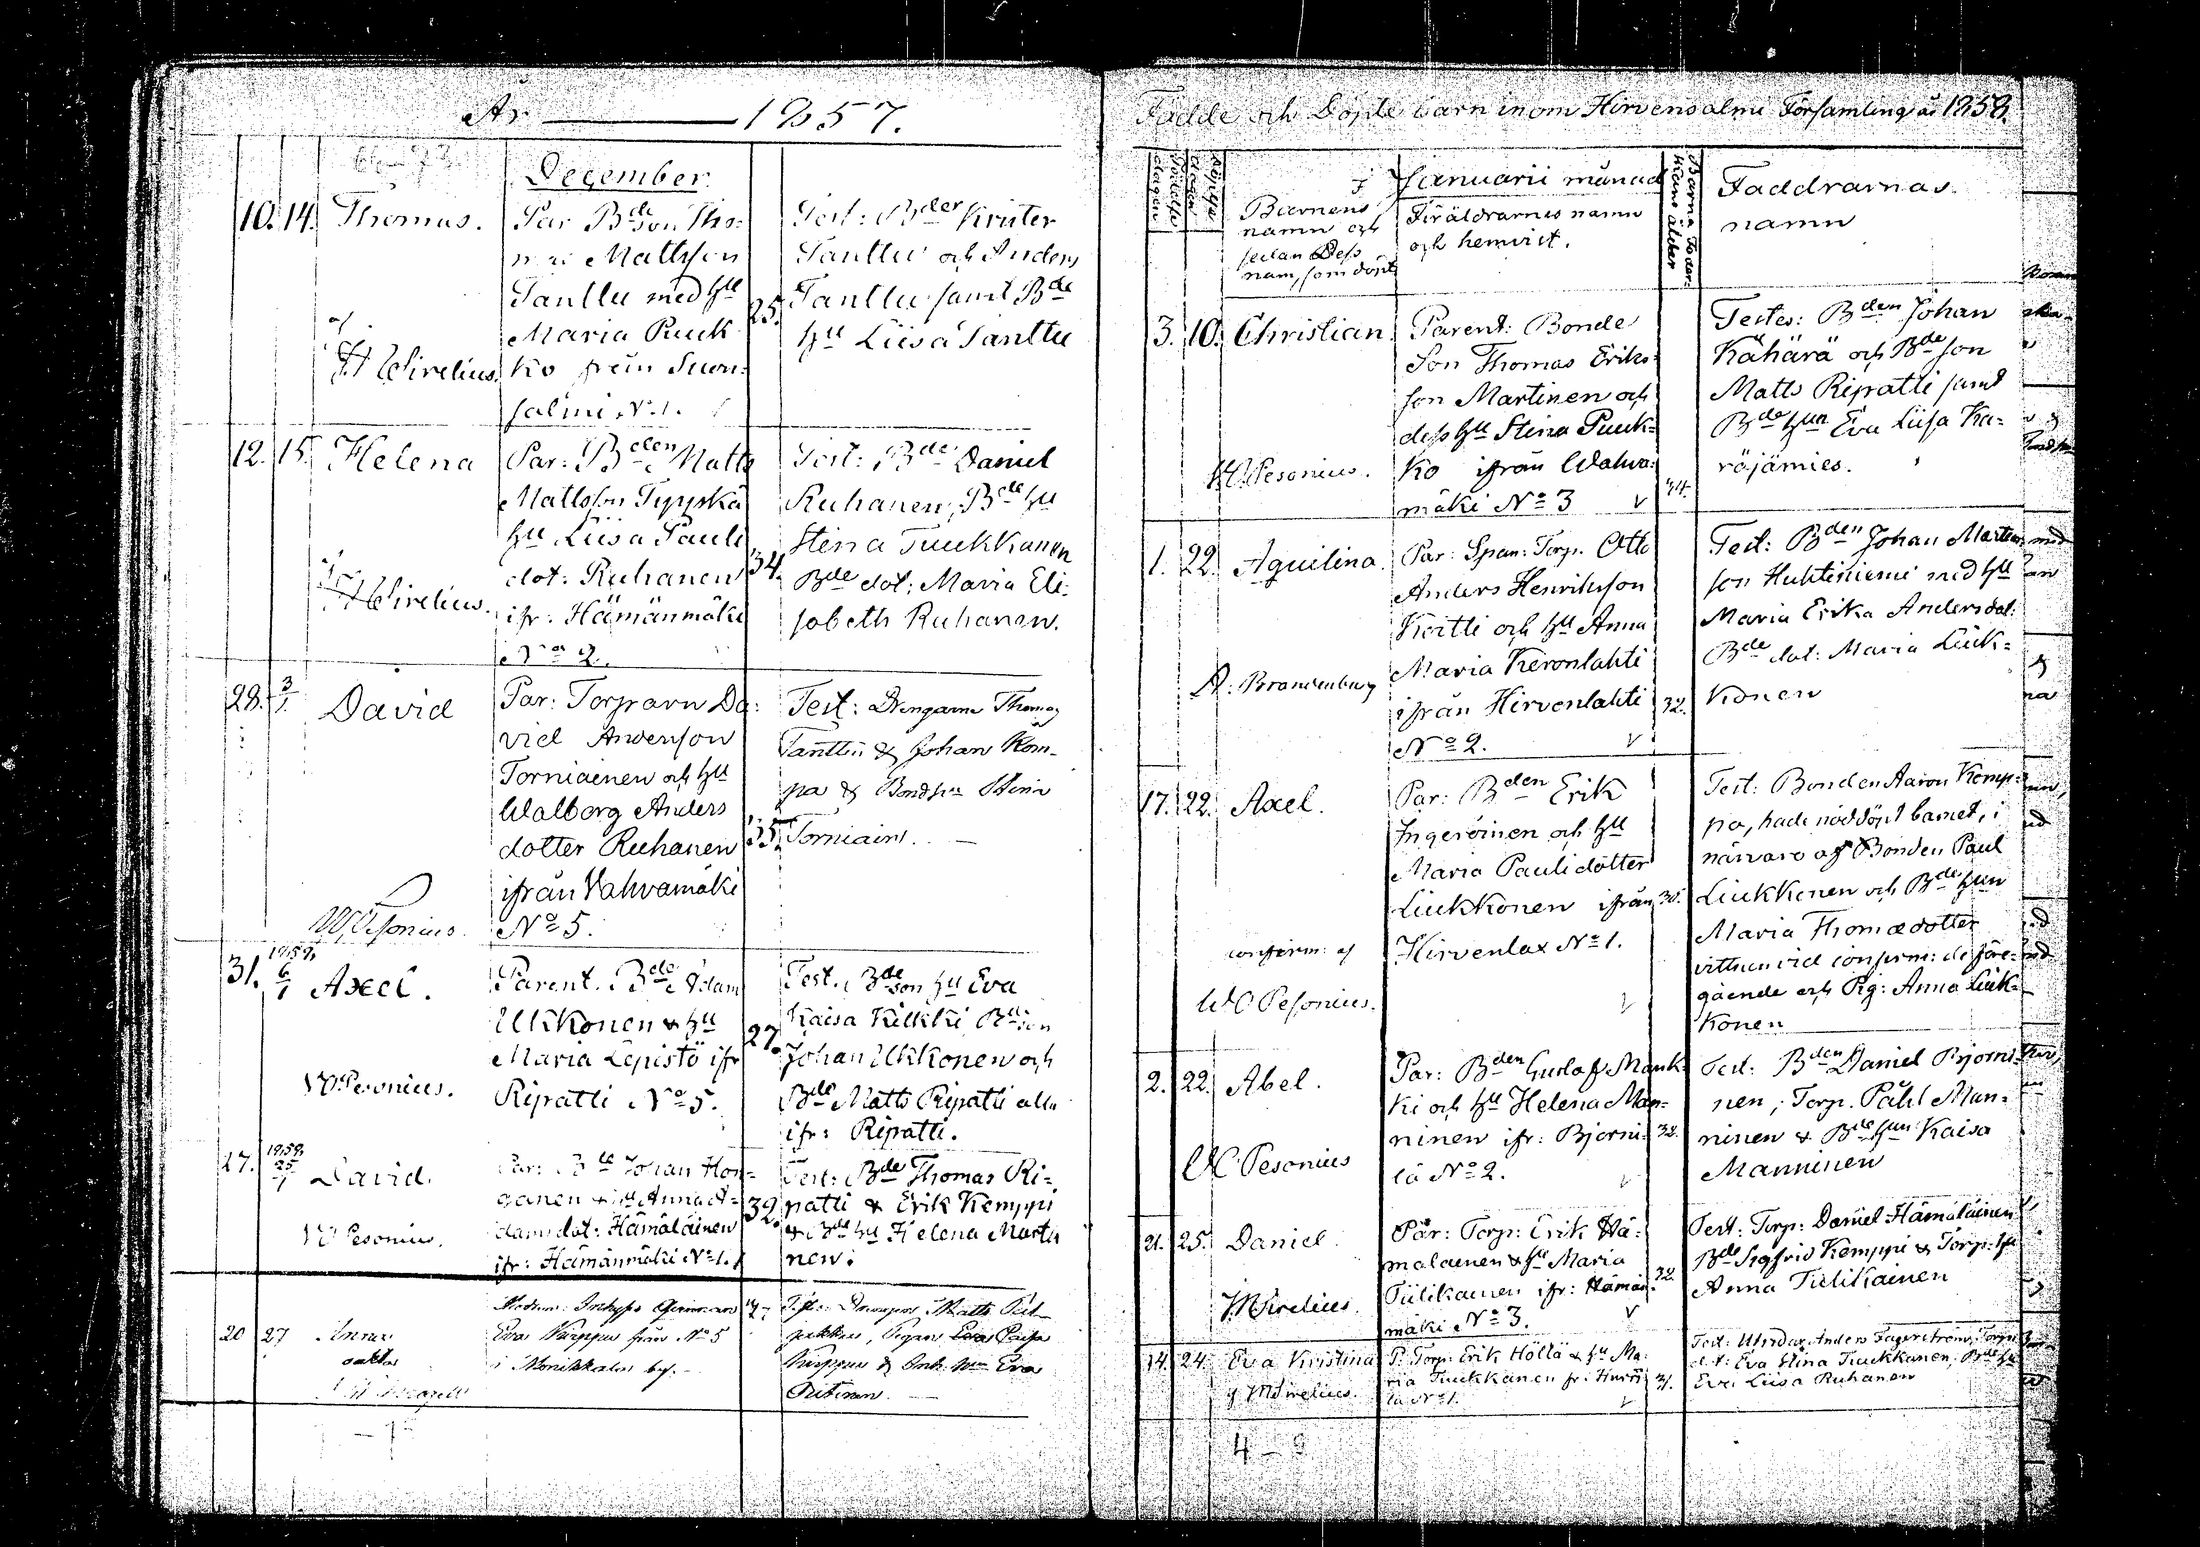 År 1857.
December.
10. 14. Thomas.
af
H Wirelius.
Par Bde son Tho-
mas Mattsson
Tanttu med hu
Maria Puuk
ko från Suon-
salmi No 1.
25.
Test: Bder Krister
Tanttu och Anders
Tanttu samt Bde
hu Liisa Tanttu
12. 15. Helena
H Wirelius.
Par: Bden Matts
Mattsson Tyyskä
hu Liisa Pauli
dot: Ruhanen
ifr: Hämänmäki
No 2.
34.
Test: Bde Daniel
Ruhanen, Bde hu
Stina Tuukkanen
Bde dot: Maria Eli-
sabeth Ruhanen.
28. 3/1 David
W Pesonius.
Par: Torparn Da-
vid Andersson
Torniainen och hu
Walborg Anders
dotter Ruhanen
ifrån Vahvamäki
No 5.
35.
Test: Drengarne Thomas
Tanttu & Johan Kom-
pa & Bondhu Stina
Torniainen. —
31. 1858 6/1 Axel.
W Pesonius.
Parent. Bde Adam
Ukkonen & hu
Maria Lepistö ifr
Ripatti No 5.
27.
Test. Bde son hu Eva
Kaisa Kilkki Bde son
Johan Ukkonen och
Bde Matts Ripatti alla
ifr: Ripatti.
27. 1858 25/1 David.
W Pesonius.
Par: Bde Johan Hon-
ganen & hu Anna A-
damsdot: Hämäläinen
ifr: Hämänmäki No 1.
32.
Test: Bde Thomas Ri-
patti & Erik Kemppi
& Bde hu Helena Marti
nen.
20 27 Anna
oäkta
Eva Kurppa från No 5
i Monikkala by. —
Test: Drengen Matts
Pigan Eva Caisa
Kurppa & Inh. Eva
—
Födde och Döpte barn inom Hirvensalmi Församling år 1858.
Januarii månad
Barnens
namn och
sedan Dess
nam, som döpt
Föräldrarnes namn
och hemvist.
Faddrarnas
namn
3. 10. Christian.
W Pesonius.
Parent: Bonde
Son Thomas Eriks-
son Martinen och
dess hu Stina Puuk-
ko ifrån Wahva-
mäki No 3
34.
Testes: Bden Johan
Kähärä och Bde son
Matts Ripatti samt
Bde hun Eva Liisa Ka-
räjämies.
1. 22. Aquilina.
A: Brandenburg
Par: Span: Torp. Otto
Anders Henriksson
Kortti och hu Anna
Maria Keronlahti
ifrån Hirvenlahti
No 2.
32.
Test: Bden Johan Martins
son Huhtiniemi med hu
Maria Erika Andersdot:
Bde dot: Maria Liuk-
konen
17. 22. Axel.
confirm: af
W Pesonius.
Par: Bden Erik
Ingeroinen och hu
Maria Paulidotter
Liukkonen ifrån
Hirvenlax No 1.
30.
Test: Bonden Aaron Komp-
pa, hade nöddöpt barnet, i
närvaro af Bonden Paul
Liukkonen och Bde hun
Maria Thomædotter
vittnen vid confirm: de före-
gående och Pig: Anna Liuk-
konen
2. 22. Abel.
W Pesonius
Par: Bden Gustaf Mank-
ki och hu Helena Man-
ninen ifr: Bjorni-
lä No 2.
32.
Test: Bden Daniel Bjorni-
nen, Torp. Påhl Man-
ninen & Bde hun Kaisa
Manninen
21. 25. Daniel.
H Wirelius.
Par: Torp: Erik Hä-
mäläinen & hu Maria
Tiilikainen ifr: Hämän-
mäki No 3.
32.
Test: Torp: Daniel Hämäläinen
Bde Sigfrid Kemppi & Torp: hu
Anna Tiilikainen
14. 24. Eva Kristina
af H Wirelius.
P: Torp: Erik Höltä & hu Ma-
ria Tuukkanen fr: Hurri
la No 1.
31.
Test: Utrödar. Anders Fagerström, Torp:
dot: Eva Stina Tuukkanen, Bde hu
Eva Liisa Ruhanen